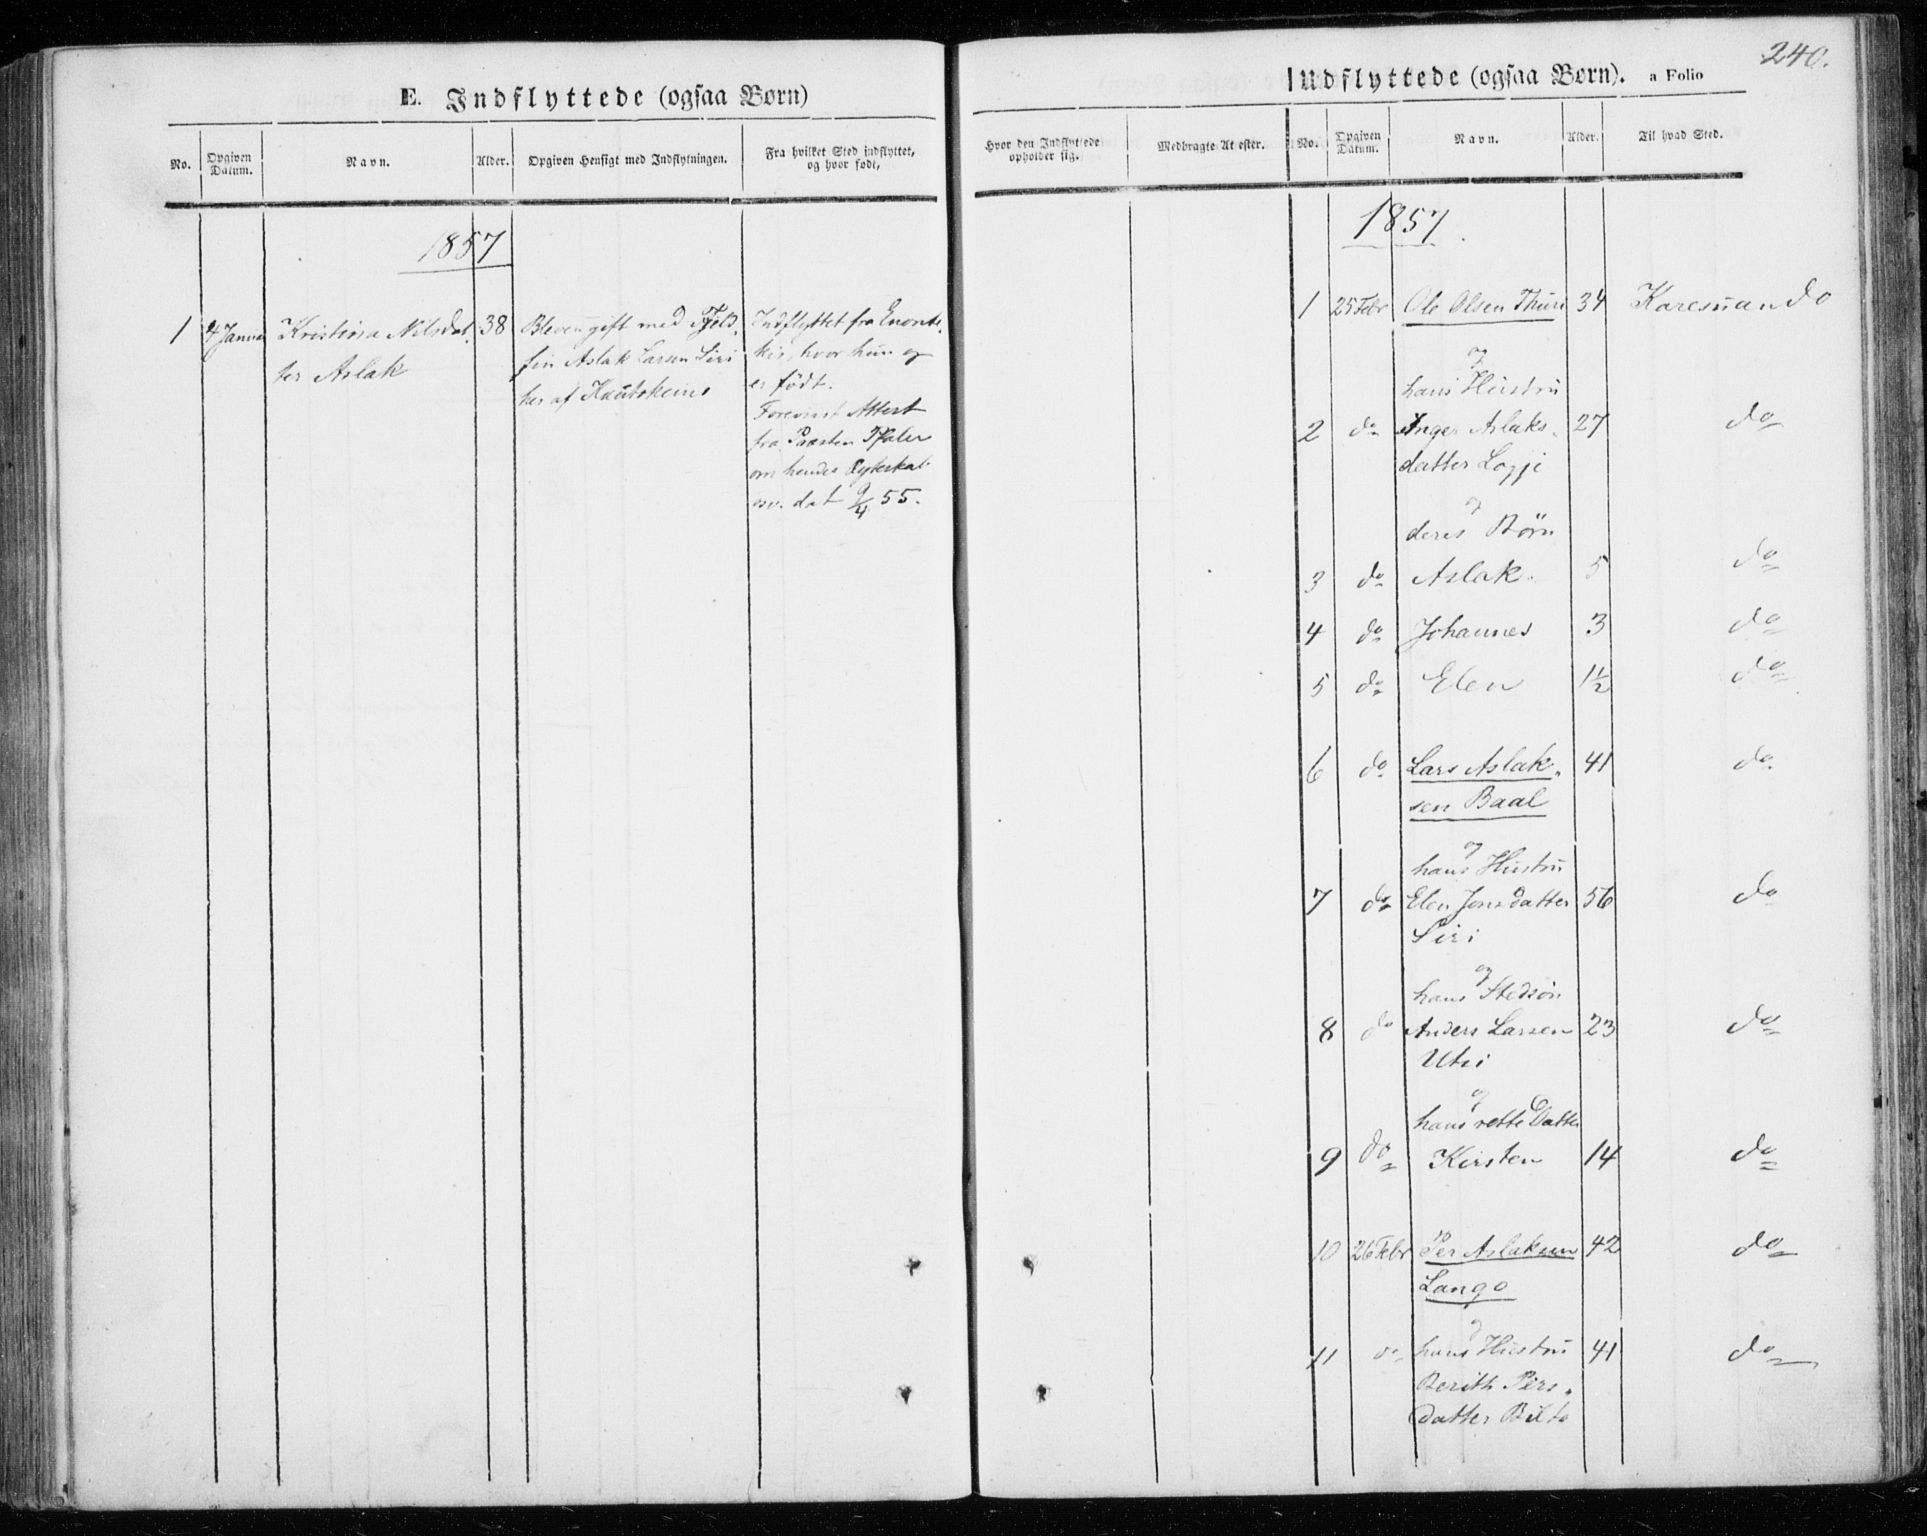 240.
E. Indflyttede (ogsaa Børn)
No.
Opgiven Datum.
Navn.
Alder.
Opgiven Hensigt med Indflytningen.
Fra hvilket Sted indflyttet, og hvor født,
1857
1
4 Januar
Kristina Nilsdat-
ter Aslak
38
Bleven gift med Fjeld-
fin Aslak Larsen Siri
her af Kautokeino
Indflyttet fra Enonte-
kis, hvor hun og
er født.
Forevist Attest
fra Pastor
om hendes
dat 9/4 55.
Indflyttede (ogsaa Børn). a Folio
Hvor den Indflyttede opholder sig.
Medbragte Attester.
No.
Opgiven Datum.
Navn.
Alder.
Til hvad Sted.
1857
1 25 Febr Ole Olsen Thuri 34 Karesuando
og
hans Hustru
2 do Inger Aslaks- 27 do
datter Logje
og
deres Börn
3 do Aslak. 5 do
4 do Johannes 3 do
5 do Elen 1½ do
6 do Lars Aslak- 41 do
sen Baal
og
hans Hustru
7 do Elen Jonsdatter 56 do
Siri
og
hans Stedsön
8 do Anders Larsen 23 do
Utsi
og
hans rette Datter
9 do Kirsten 14 do
10 26 Febr Per Aslaksen 42 do
Lango
og
11 do hans Hustru 41 do
Berith Pers-
datter Bilto